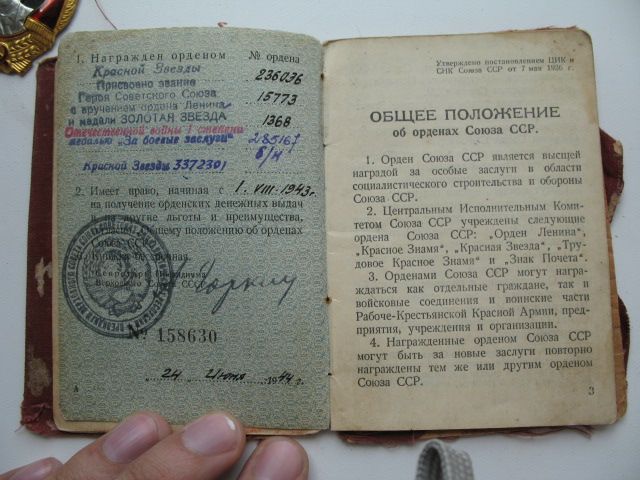 1. Награжден орденом № ордена
Красной Звезды 236036
Присвоено звание
Героя Советского Союза
с вручением ордена Ленина 15773
и медали ЗОЛОТАЯ ЗВЕЗДА 1368
Отечественной войны I степени 285167
медалью „За боевые заслуги" б/н
Красной Звезды 3372301
2. Имеет право, начиная с 1. VIII. 1943 г.
на получение орденских денежных выдач
и на другие льготы и преимущества,
согласно Общему положению об орденах
Союза ССР.
3. Книжка бессрочная.
Секретарь Президиума
Верховного Совета СССР Горкин
№ 158630
24 Июня 1944 г.
Утверждено постановлением ЦИК и
СНК Союза ССР от 7 мая 1936 г.
ОБЩЕЕ ПОЛОЖЕНИЕ
об орденах Союза ССР.
1. Орден Союза ССР является высшей
наградой за особые заслуги в области
социалистического строительства и обороны
Союза ССР.
2. Центральным Исполнительным Коми-
тетом Союза ССР учреждены следующие
ордена Союза ССР: „Орден Ленина",
„Красное Знамя", „Красная Звезда", „Тру-
довое Красное Знамя" и „Знак Почета".
3. Орденами Союза ССР могут на-
граждаться как отдельные граждане, так и
войсковые соединения и воинские части
Рабоче-Крестьянской Красной Армии, пред-
приятия, учреждения и организации.
4. Награжденные орденом Союза ССР
могут быть за новые заслуги повторно
награждены тем же или другим орденом
Союза ССР.
3